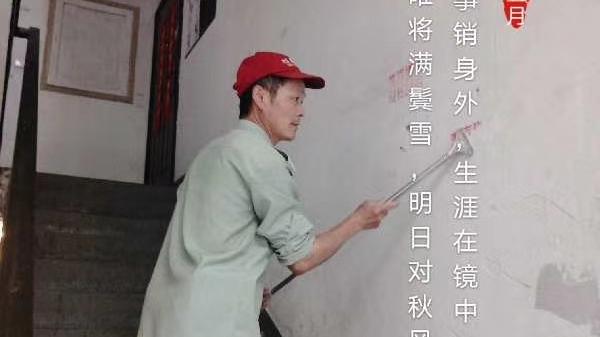 月
事销身外,生涯在镜中
将满鬓雪,明日对秋风